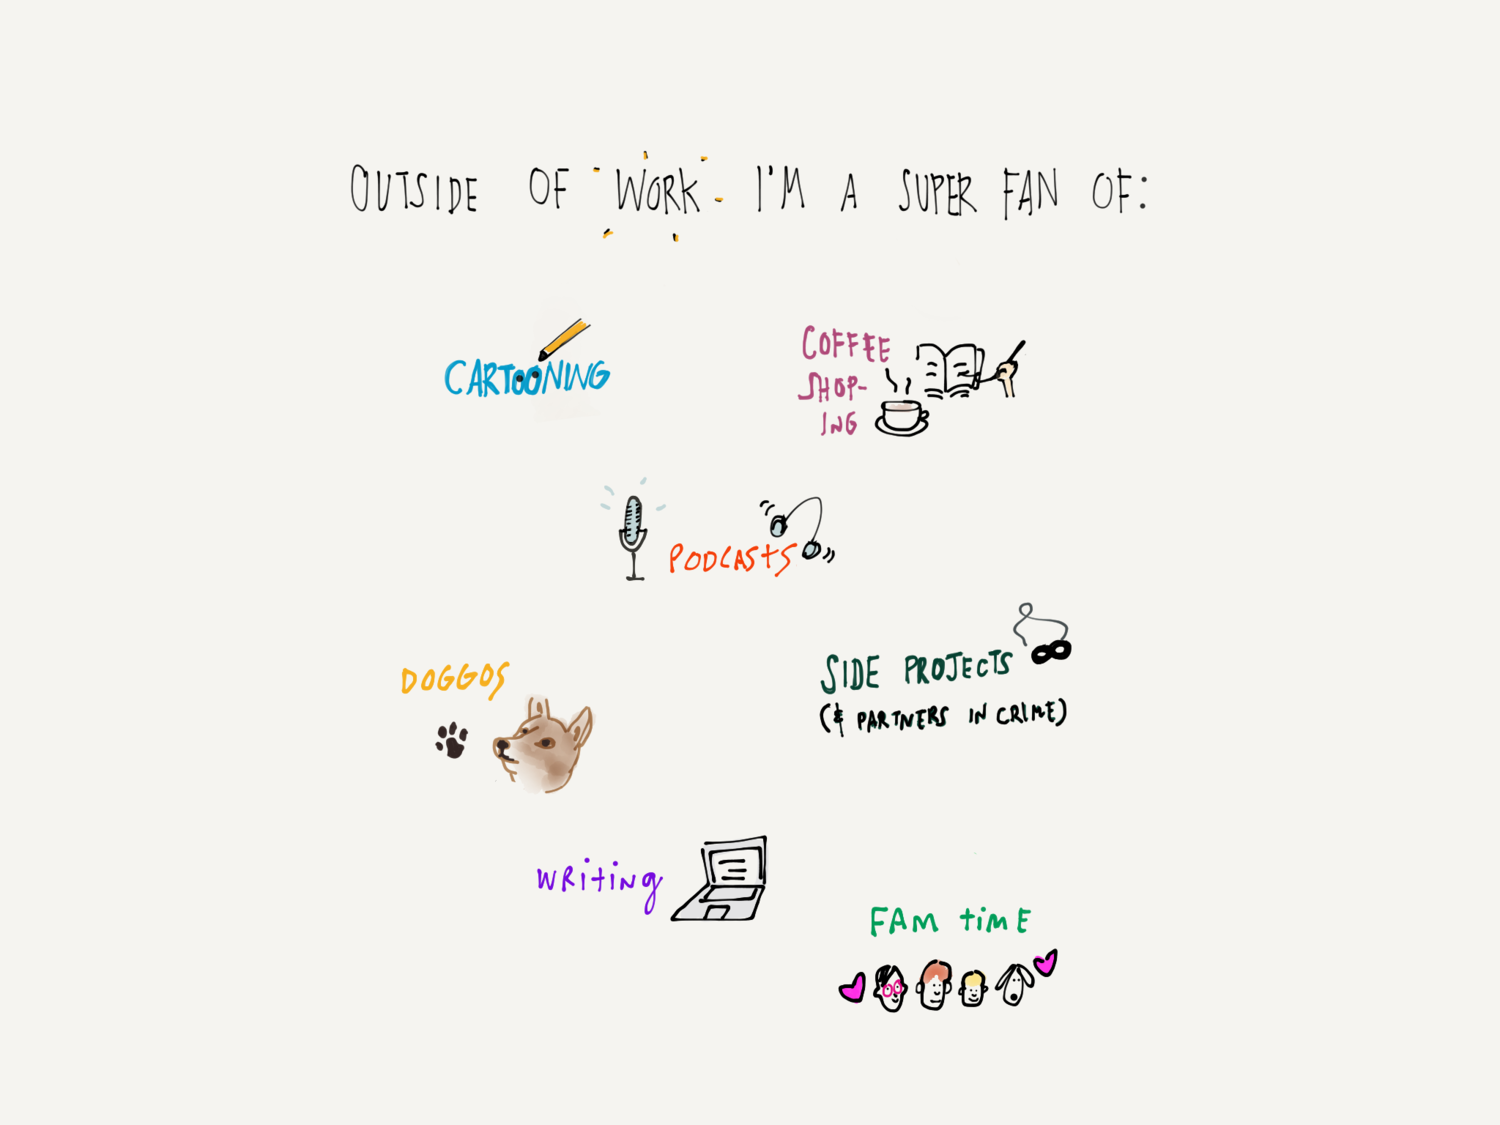 OUTSIDE OF WORK I'M A SUPER FAN OF:
CARTOONING
COFFEE
SHOP-
ING
PODCASTS
DOGGOS
SIDE PROJECTS
(& PARTNERS IN CRIME)
WRiting
FAM timE